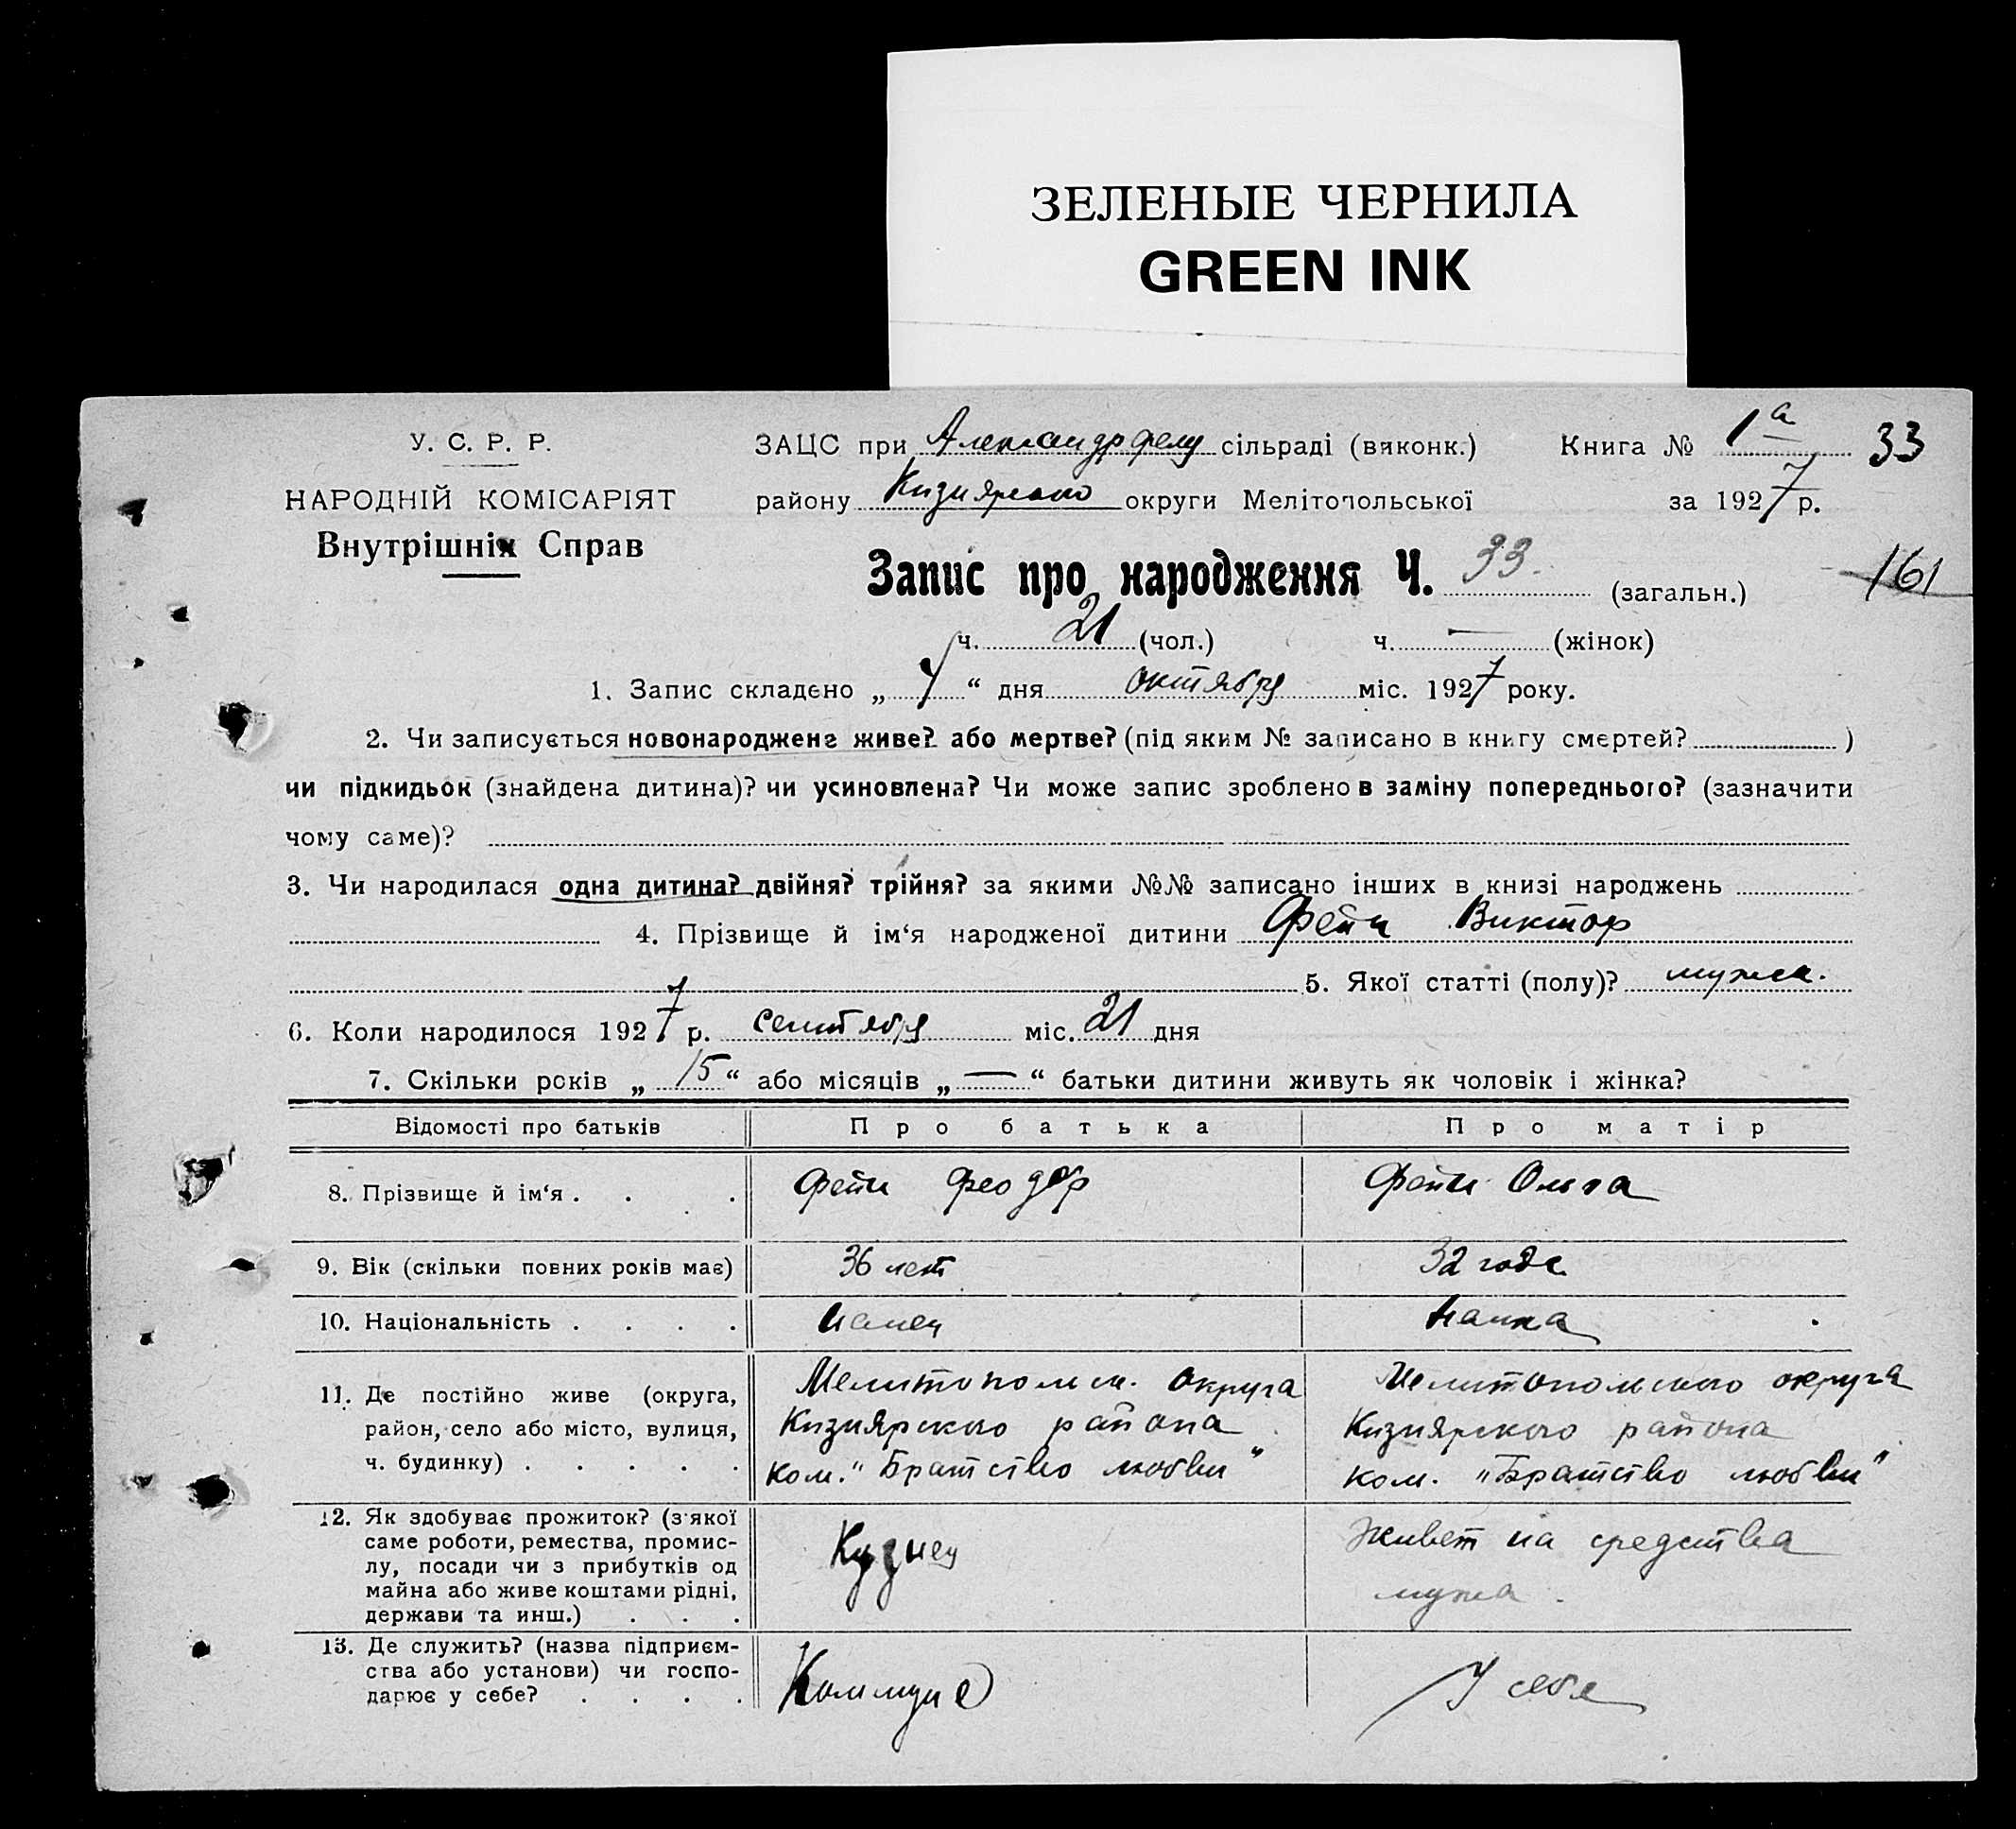 ЗЕЛЕНЫЕ ЧЕРНИЛА
GREEN INK
У. С. Р. Р.
НАРОДНІЙ КОМІСАРІЯТ
Внутрішніх Справ
ЗАЦС при Александрфелд сільраді (виконк.) Книга № 1а 33
району Кизиярского округи Мелітопольської за 1927 р.
Запис про народження Ч. 33. (загальн.) 161
ч. 21 (чол.) ч. — (жінок)
1. Запис складено „ “ дня октября міс. 1927 року.
2. Чи записується новонароджене живе? або мертве? (під яким № записано в книгу смертей? )
чи підкидьок (знайдена дитина)? чи усиновлена? Чи може запис зроблено в заміну попереднього? (зазначити
чому саме)?
3. Чи народилася одна дитина? двійня? трійня? за якими №№ записано інших в книзі народжень
4. Прізвище й ім‘я народженої дитини Виктор
5. Якої статті (полу)? мужск.
6. Коли народилося 1927 р. сентября міс. 21 дня
7. Скільки років „ 15 “ або місяців „ — “ батьки дитини живуть як чоловік і жінка?
Відомості про батьків
Про батька
Про матір
8. Прізвище й ім‘я . . .
Феодор
Ольга
9. Вік (скільки повних років має)
36 лет
32 года
10. Національність . . . .
немец
немка
11. Де постійно живе (округа,
район, село або місто, вулиця,
ч. будинку) . . . . .
Мелитопольск. округа
Кизиярского района
ком. „Братство любви“
Мелитопольского округа
Кизиярского района
ком. „Братство любви“
12. Як здобуває прожиток? (з якої
саме роботи, ремества, промис-
лу, посади чи з прибутків од
майна або живе коштами рідні,
держави та инш.) . . .
Кузнец
Живет на средства
мужа.
13. Де служить? (назва підприєм-
ства або установи) чи госпо-
дарює у себе? . . . .
Коммуне
У себя